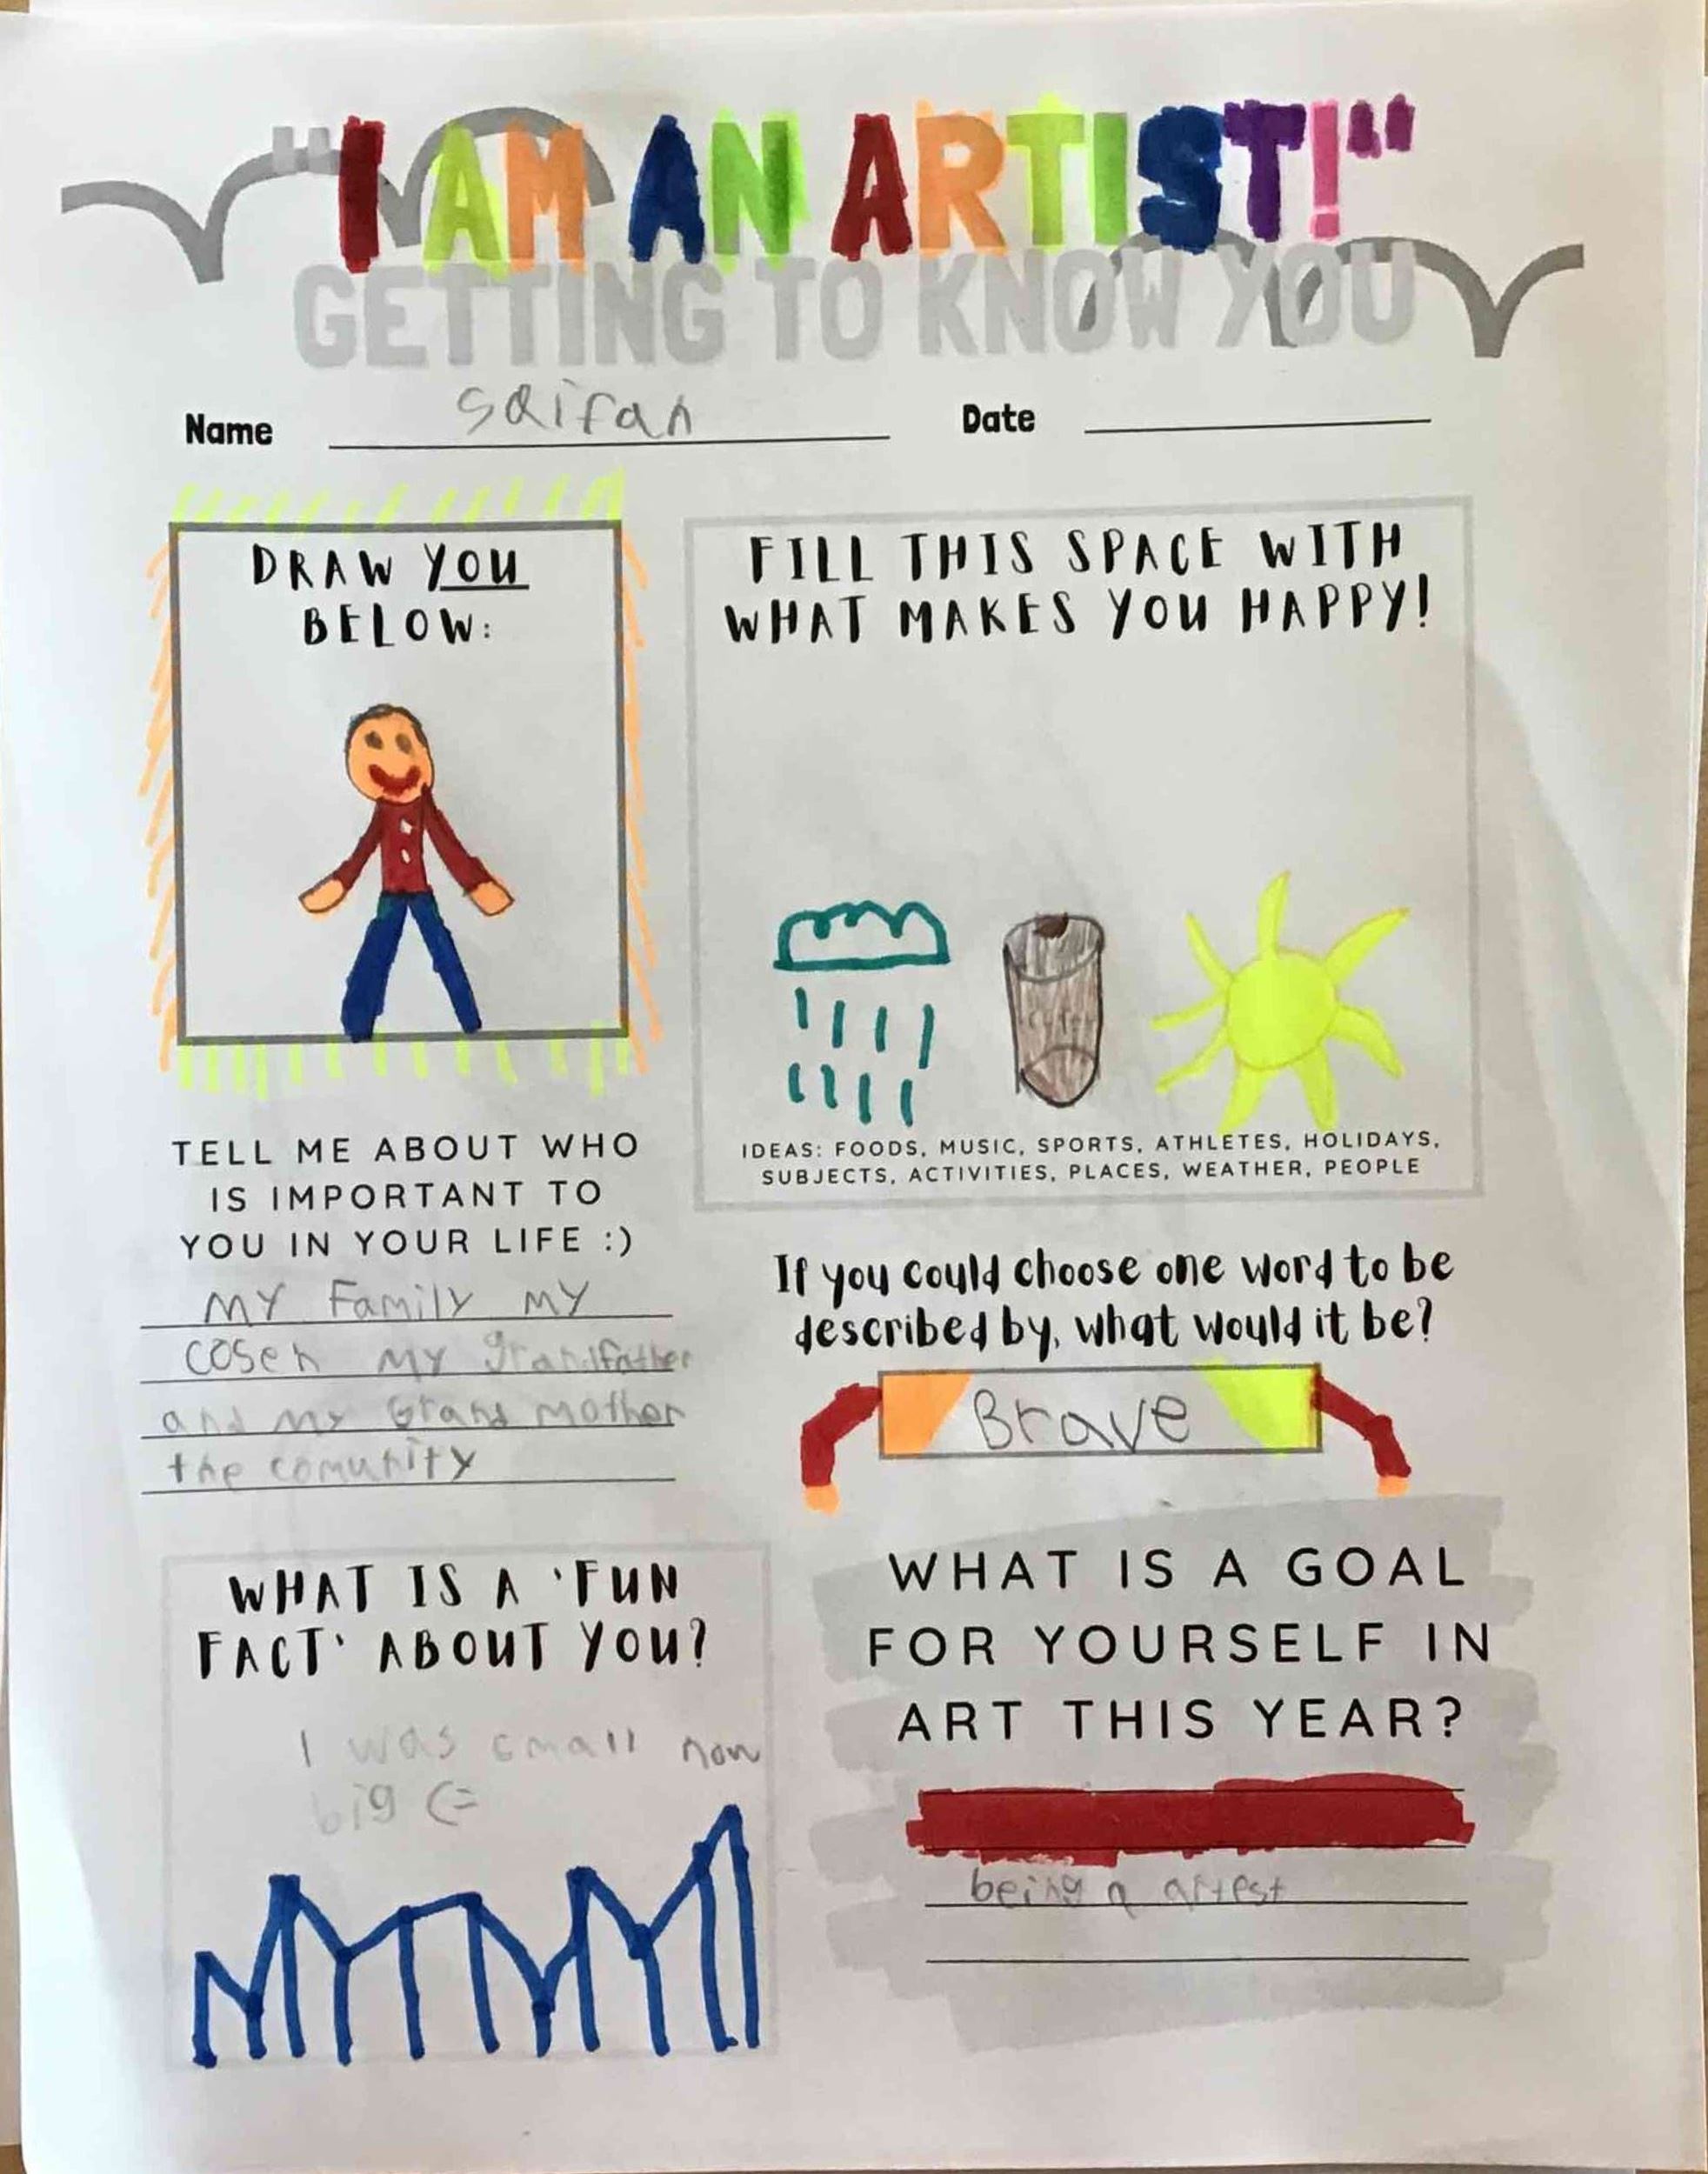 "I AM AN ARTIST!"
GETTING TO KNOW YOU
Name saifan Date
DRAW YOU
BELOW:
FILL THIS SPACE WITH
WHAT MAKES YOU HAPPY!
IDEAS: FOODS, MUSIC, SPORTS, ATHLETES, HOLIDAYS,
SUBJECTS, ACTIVITIES, PLACES, WEATHER, PEOPLE
TELL ME ABOUT WHO
IS IMPORTANT TO
YOU IN YOUR LIFE :)
MY Family MY
cosen MY grandfather
and my Grand mother
the comunity
If you could choose one word to be
described by, what would it be?
Brave
WHAT IS A 'FUN
FACT' ABOUT YOU?
I was cmall now
big (=
WHAT IS A GOAL
FOR YOURSELF IN
ART THIS YEAR?
being a artest